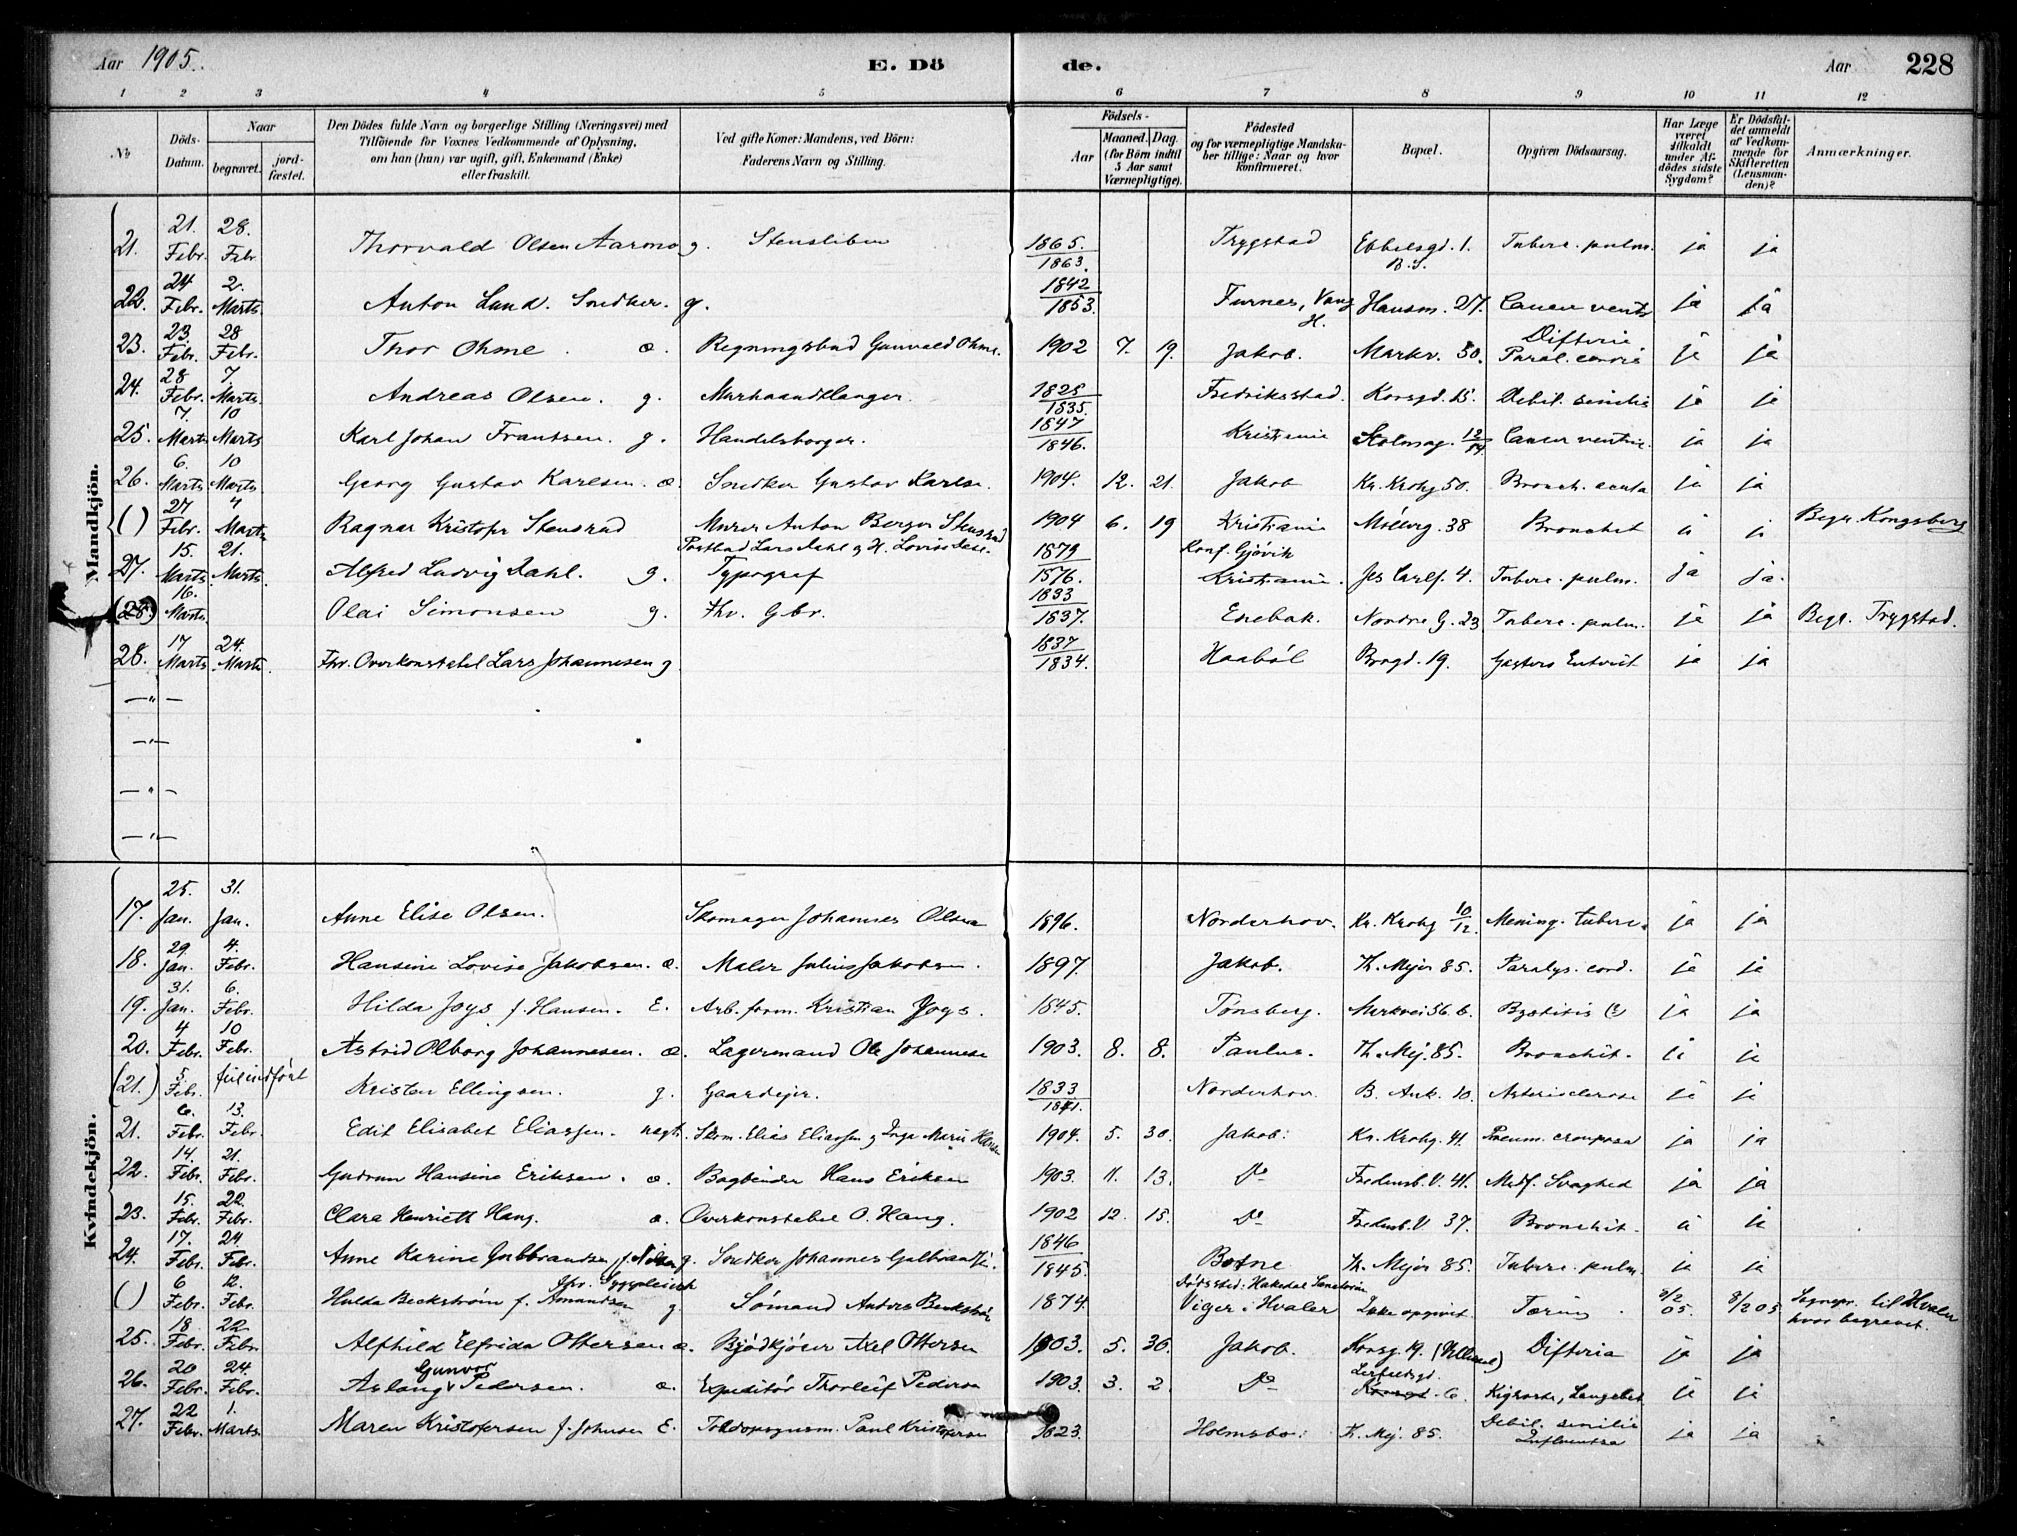 Aar 1905. E. Dö de. Aar 228
1 2 3 4 5 6 7 8 9 10 11 12
No
Döds-Datum.
Naar
begravet.
jord-fæstet.
Den Dödes fulde Navn og borgerlige Stilling (Næringsvei) med
Tilföiende for Voxnes Vedkommende af Oplysning,
om han (hun) var ugift, gift, Enkemand (Enke)
eller fraskilt.
Ved gifte Koner: Mandens, ved Börn:
Faderens Navn og Stilling.
Födsels-
Aar
Maaned. Dag.
(for Börn indtil
5 Aar samt
Værnepligtige).
Födested
og for værnepligtige Mandska-
ber tillige: Naar og hvor
konfirmeret.
Bopæl.
Opgiven Dödsaarsag.
Har Læge
været
tilkaldt
under Af-
dödes sidste
Sygdom?
Er Dödsfal-
det anmeldt
af Vedkom-
mende for
Skifteretten
(Lensman-
den)?
Anmærkninger.
Mandkjön.
21. 21. Febr. 28. Febr. Thorvald Olsen Aamo g. 1865. 1863. Trygstad 1. B.S. Tuberc. pulm. ja ja
22. 24 Febr. 2. Marts. Anton Lund. Snedker. g. 1842 1853. Furnes, Vang H. Hausm. 27. Cancer ventr. ja ja
23. 23. Febr. 28 Febr. Thor Ohme. æ. Regningsbud Gunvald Ohme. 1902 7. 19. Jakob. Markv. 50. Difterie Paral. cordis ja ja
24. 28 Febr. 7. Marts. Andreas Olsen. g. Murhaandlanger. 1825 1835. Fredriksstad. Korsgd. 15. Debil. senilis ja ja
25. 7. Marts 10 Marts Karl Johan Frantsen. g. Handelsborger. 1847 1846. Kristiania 12/14 Cancer ventric. ja ja
26. 6. Marts 10 Marts Georg Gustav Karlsen. æ. Snedker Gustav Karlsen. 1904. 12. 21. Jakob Kr. Krohg 50. Bronch. acuta ja ja
( ) 27 Febr. 4 Marts Ragnar Kristofer Stensrud Murer Anton Berger Stensrud 1904 6. 19 Kristiania Mölleg. 38 Bronchit ja ja Begr. Kongsberg
27. 15. Marts 21. Marts. Alfred Ludvig Dahl. g. Postbud Lars Dahl og H. Lovise Typograf 1879 1876. Konf. Gjövik Kristiania. Jes Carlf. 4. Tuberc. pulm. ja ja.
(28.) 16. Marts. Olai Simonsen g. Fhv. Gbr. 1833 1837. Enebak. Nordre G. 23 Tuberc. pulm. ja ja Begr. Trygstad.
28. 17 Marts 24. Marts. Fhv. Overkonstabel Lars Johannesen g. 1837 1834. Haaböl 19. ja ja
— " —
— " —
— " —
— " —
Kvindekjön.
17. 25. Jan. 31. Jan. Anne Elise Olsen. Skomager Johannes Olsen 1896. Norderhov. Kr. Krohg 10/12 Mening. tuberc. ja ja
18. 29 Jan. 4. Febr. Hansine Lovise Jakobsen. æ. Maler Julius Jakobsen. 1897. Jakob. Th. Mejer 85. Paralys. cord. ja ja
19. 31. Jan. 6. Febr. Hilda Joys f. Hansen. E. Arb. form. Kristian Joys. 1845. Tönsberg. Markvei 56. b. ja ja
20. 4 Febr. 10 Febr. Astrid Olborg Johannesen. æ. Lagermand Ole Johannesen 1903. 8. 8. Paulus. Th. Mej. 85. Bronchit. ja ja
(21.) 5. Febr. feilindfört Kristen Ellingsen. g. Gaardejer. 1833 1841. Norderhov B. Ank. 10. Arteriosclerose ja ja
21. 6. Febr. 13. Febr. Edit Elisabet Eliassen. uægte. Skom. Elias Eliassen og Inga Marie Hansen 1904. 5. 30. Jakob. Kr. Krohg. 41. Pneum. crouposa ja ja
22. 14. Febr. 21. Febr. Gudrun Hansine Eriksen. æ. Bogbinder Hans Eriksen 1903. 11. 13. Do Fredensb. V. 41. Medf. Svaghed ja ja
23. 15. Febr. 22. Febr. Clara Henriette Haug. æ. Overkonstabel O. Haug. 1902 12. 15. Do Fredensb. V 37. Bronchit. ja ja
24. 17. Febr. 24. Febr. Anne Karine Gulbrandsen f. Nilsen g. Snedker Johannes Gulbrandsen. 1846 1845. Botne Th. Mejer 85. Tuberc. pulm. ja ja
( ) 6 Febr. 12. Febr. Hulda Beckström f. Amundsen fhv. Sygepleiersk g Sömand Anders Beckström 1874. Dödssted: Hakedal Sanatorium Viger i Hvaler Ikke opgivet. Tæring. 8/2 05. 8/2 05 Sognepr. til Hvaler hvor begravet.
25. 18 Febr. 22 Febr. Alfhild Elfrida Ottersen æ. Brödkjörer Axel Ottersen 1903. 5. 30. Jakob. Korsg. 19. (Ullevaal) Difteria ja ja
26. 20 Febr. 24. Febr. Aslaug Gunvor Pedersen. æ. Expeditör Thorleif Pedersen 1903. 3. 2. Do 6 Kighoste, Lungebet. ja ja
27. 22 Febr. 1. Marts Maren Kristofersen f. Johnsen E. Toldopsynsm. Paul Kristofersen 1823. Holmsbo. Th. Mej. 85. Debil. senilis Influentsa ja ja